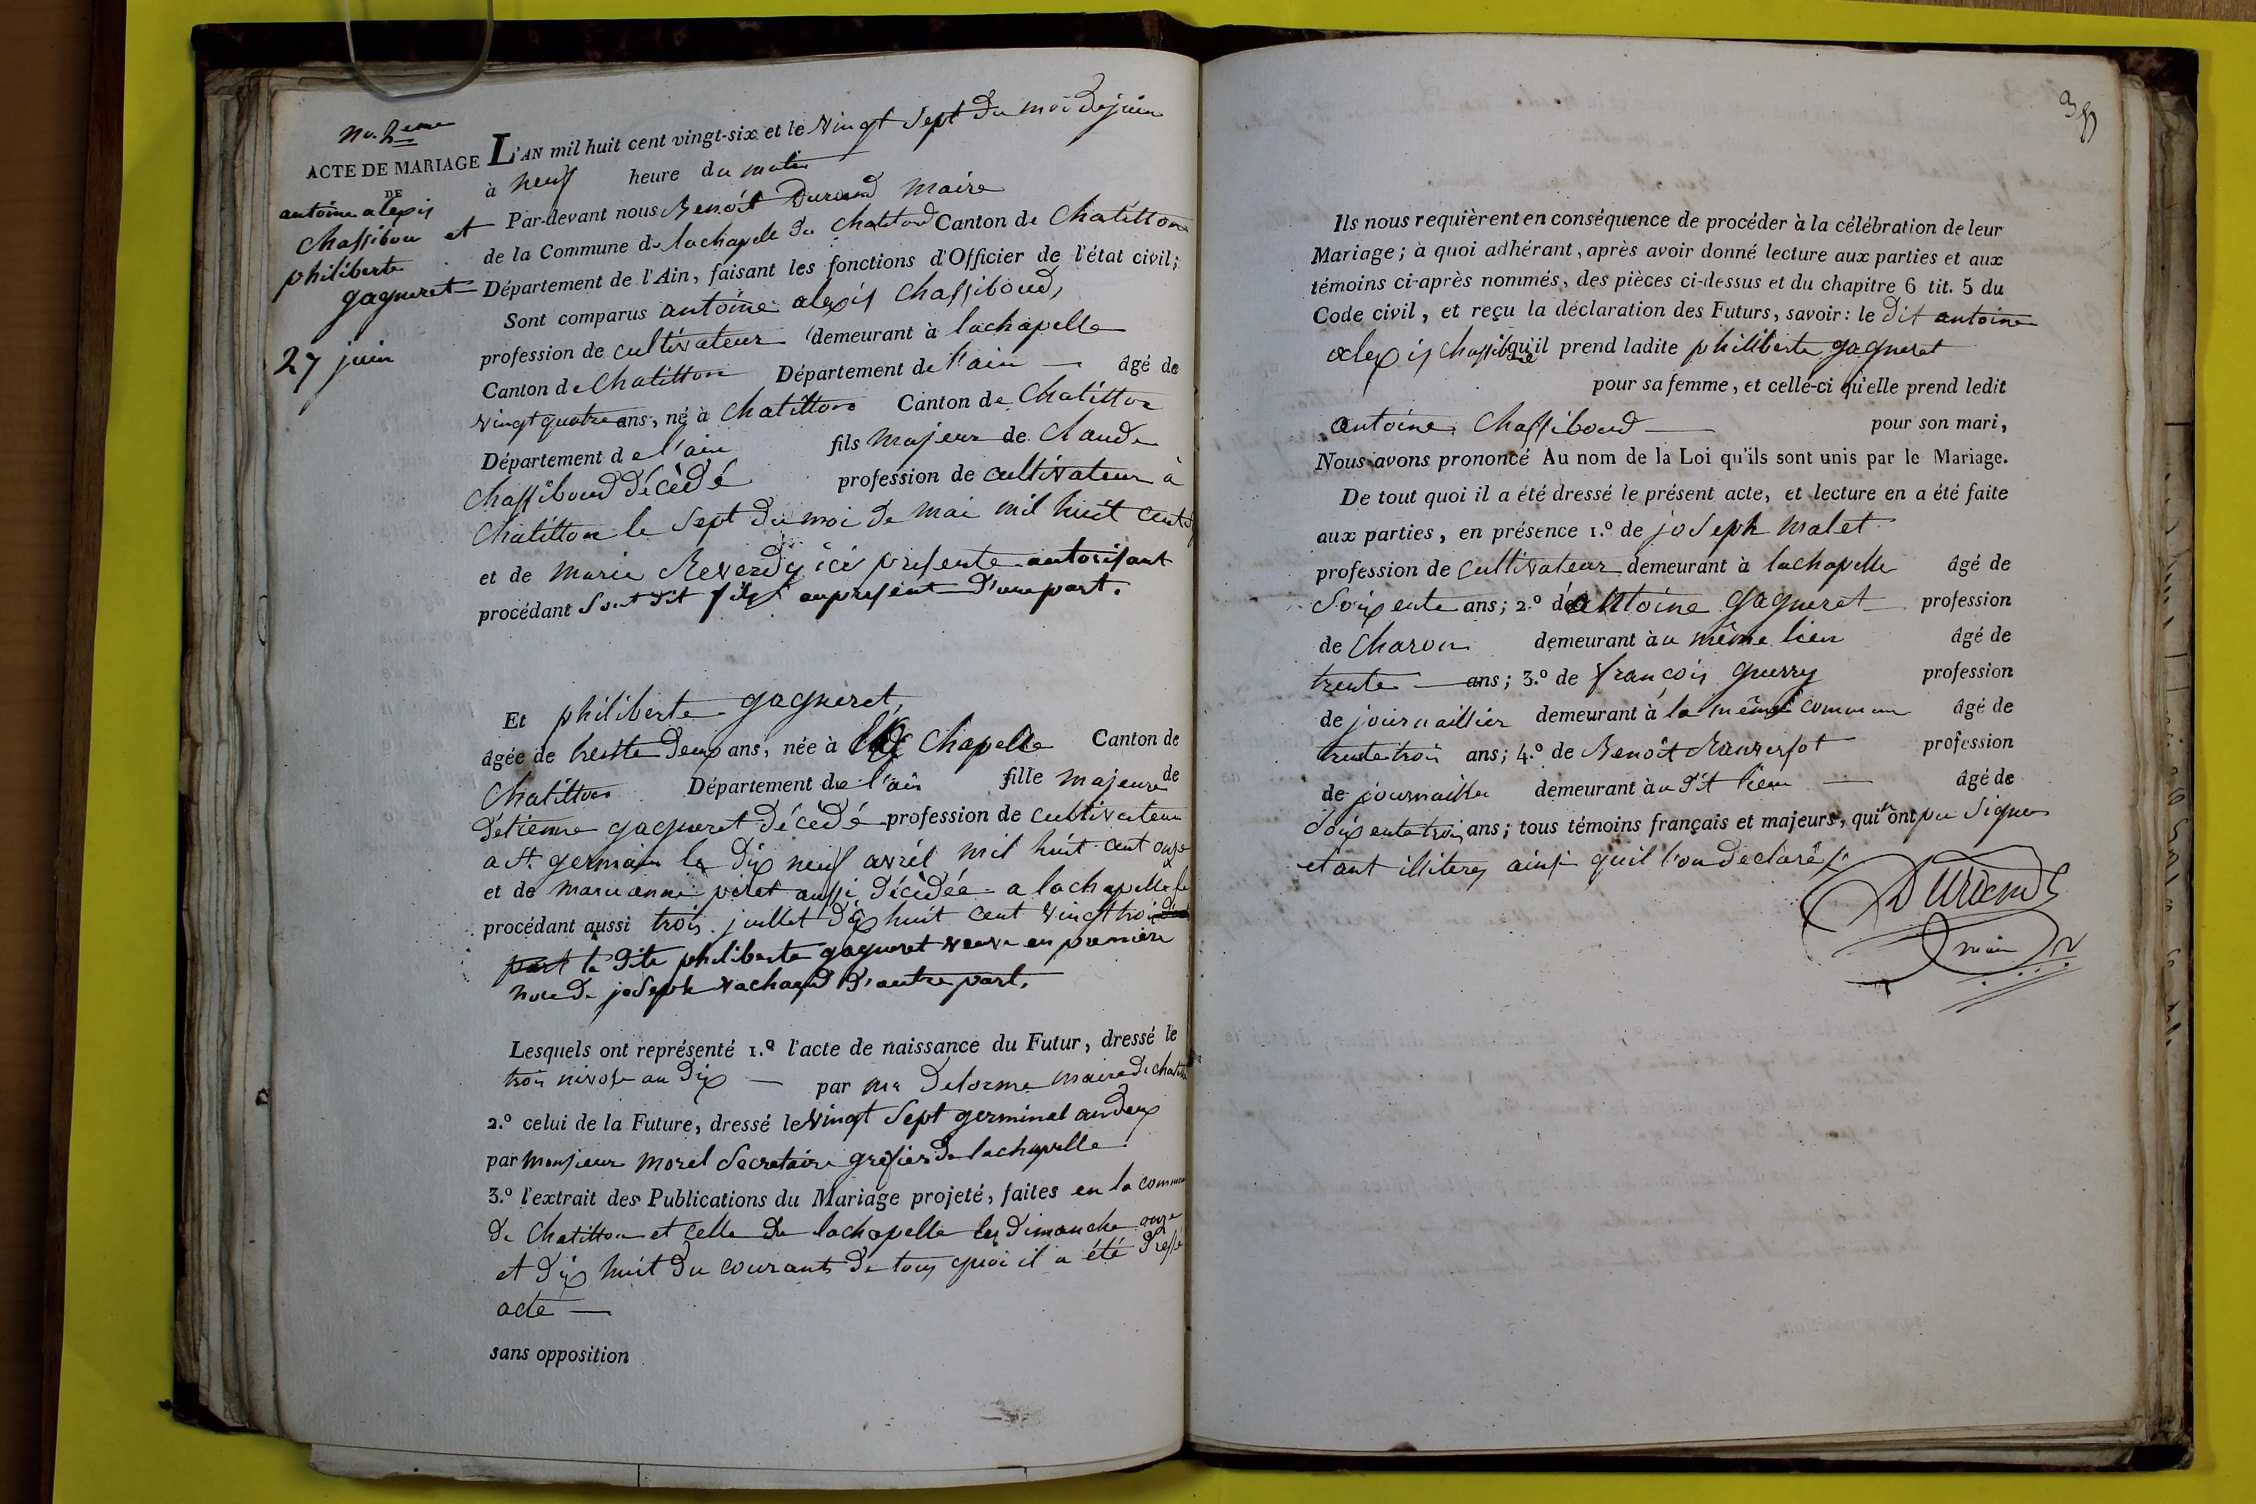 No. 2eme
ACTE DE MARIAGE
DE
antoine alexis
Chassibou et
philiberte
gagneret
27 juin
L'AN mil huit cent vingt-six et le vingt Sept du moi de juin
à neuf heure du matin
Par-devant nous Benoît Durand maire
de la Commune de lachapelle du Chatelard Canton de Chatillon
Département de l'Ain, faisant les fonctions d'Officier de l'état civil;
Sont comparus antoine alexis Chassiboud,
profession de cultivateur demeurant à lachapelle
Canton de Chatillon Département de l'ain — âgé de
vingt quatre ans, né à Chatillon Canton de Chatillon
Département de l'ain fils majeur de Claude
Chassiboud décèdé profession de cultivateur à
Chatillon le Sept du moi de mai mil huit cent
et de marie Reverdy ici presente autorisant
procédant Sont dit fils au present d'une part.
Et philiberte gagneret,
âgée de trente deux ans, née à la Chapelle Canton de
Chatillon Département de l'ain fille majeure de
d'etienne gagneret décèdé profession de cultivateur
a St. germain le dix neuf avril mil huit cent onze
et de marianne péret aussi décèdée a lachapelle le
procédant aussi trois juillet dix huit cent vingt troi
part la dite philiberte gagneret veuve en premiere
noce de joseph vachard d'autre part.
Lesquels ont représenté 1.º l'acte de naissance du Futur, dressé le
trois nivose an dix — par mr Delorme maire de chatillon
2.º celui de la Future, dressé le vingt Sept germinal an deux
par monsieur morel Secretaire grefier de lachapelle
3.º l'extrait des Publications du Mariage projeté, faites en la commune
de Chatillon et celle de lachapelle les dimanche onze
et dix huit du courants de tous quoi il a été dressé
acte —
sans opposition
38
Ils nous requièrent en conséquence de procéder à la célébration de leur
Mariage; à quoi adhérant, après avoir donné lecture aux parties et aux
témoins ci-après nommés, des pièces ci-dessus et du chapitre 6 tit. 5 du
Code civil, et reçu la déclaration des Futurs, savoir: le dit antoine
alexis chassiboud qu'il prend ladite philiberte gagneret
pour sa femme, et celle-ci qu'elle prend ledit
antoine Chassiboud — pour son mari,
Nous avons prononcé Au nom de la Loi qu'ils sont unis par le Mariage.
De tout quoi il a été dressé le présent acte, et lecture en a été faite
aux parties, en présence 1.º de joseph malet
profession de cultivateur demeurant à lachapelle âgé de
Soixente ans; 2.º de antoine gagneret profession
de Charon demeurant à u même lieu âgé de
trente — ans; 3.º de françois guerry profession
de journaillier demeurant à la même commun âgé de
trente trois ans; 4.º de Benoît profession
de journaillier demeurant à u dit lieu — âgé de
Soixente trois ans; tous témoins français et majeurs, qui n'ont pu Signer
etant illiteres ainsi quil l'on declaré
Durand
maire